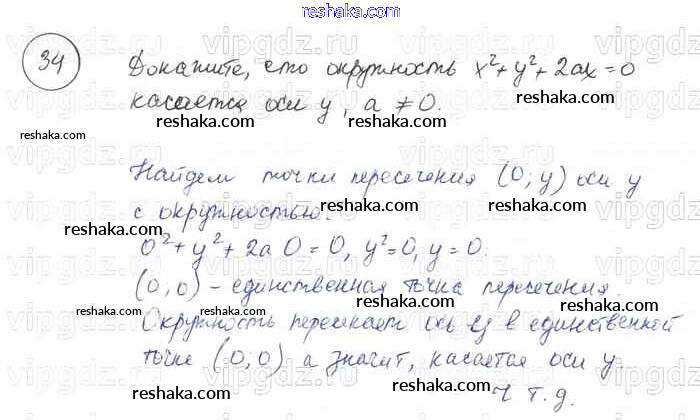 34
Докажите, что окружность x²+y²+2ax=0
касается оси y, a ≠ 0.
Найдем точки пересечения (0; y) оси y
с окружностью:
0²+y²+2a 0=0, y²=0, y=0.
(0,0) - единственная точка пересечения.
Окружность пересекает ось y в единственной
точке (0;0) а значит, касается оси y.
ч т.д.
reshaka.com
reshaka.com
reshaka.com
reshaka.com
reshaka.com
reshaka.com
reshaka.com
reshaka.com
reshaka.com
reshaka.com
reshaka.com
reshaka.com
reshaka.com
reshaka.com
vipgdz.ru
vipgdz.ru
vipgdz.ru